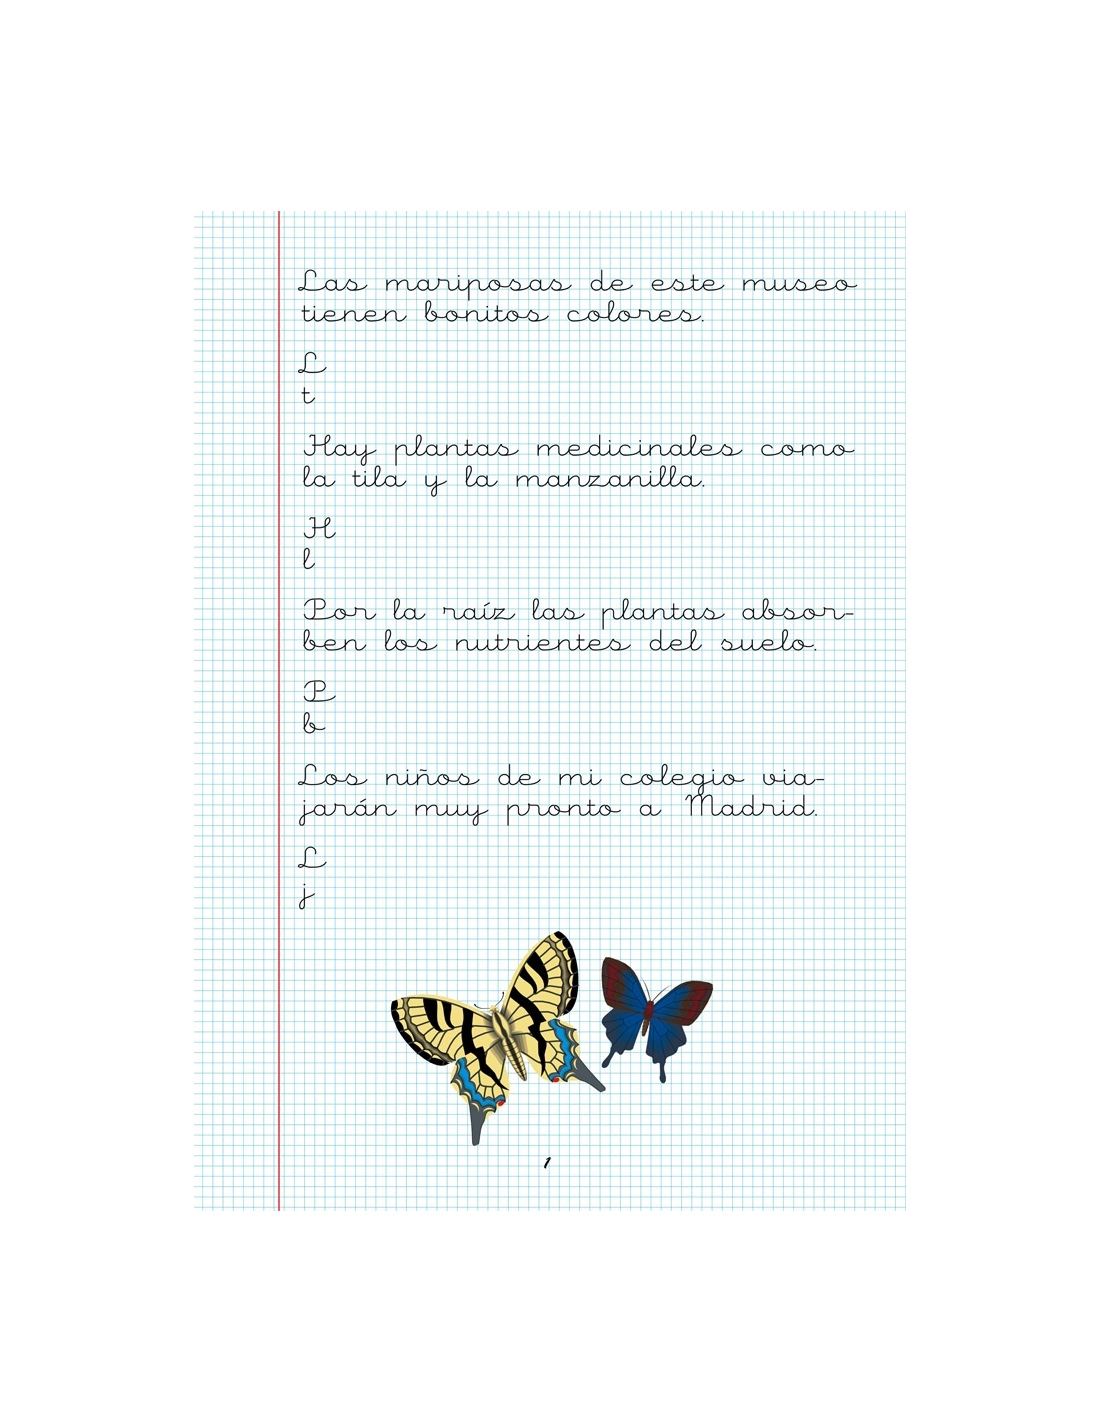 Las mariposas de este museo
tienen bonitos colores.
L
t
Hay plantas medicinales como
la tila y la manzanilla.
H
l
Por la raíz las plantas absor-
ben los nutrientes del suelo.
P
b
Los niños de mi colegio via-
jarán muy pronto a Madrid.
L
j
1